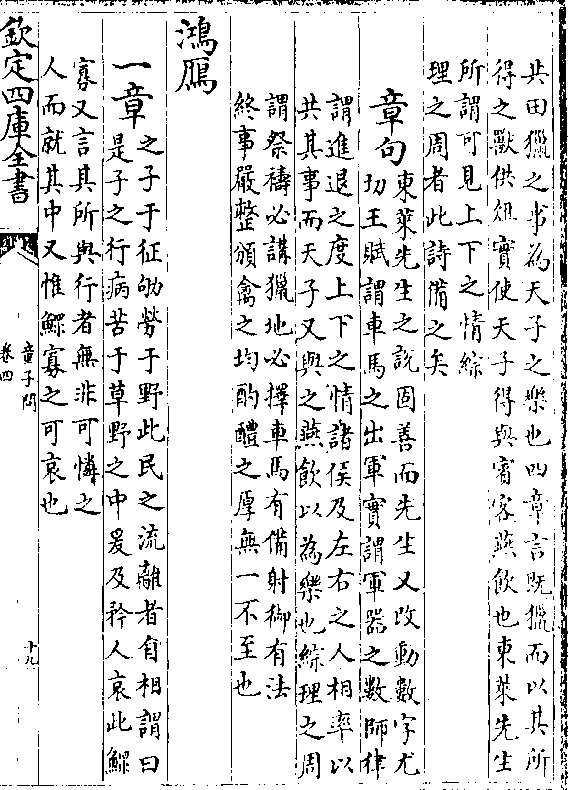 其田獵之事為天子之樂也四章言既獵而以其所
得之獸供俎實使天子得與賓客燕飲也東萊先生
所謂可見上下之情綜
理之周者此詩備之矣
章句東萊先生之説固善而先生又改動數字尤
切王賦謂車馬之出軍實謂軍器之數師律
謂進退之度上下之情諸侯及左右之人相率以
共其事而天子又與之燕飲以為樂也綜理之周
謂祭禱必講獵地必擇車馬有備射御有法
終事嚴整頒禽之均酌醴之厚無一不至也
鴻鴈
一章之子于征劬勞于野此民之流離者自相謂曰
是子之行病苦于草野之中爰及矜人哀此鰥
寡又言其所與行者無非可憐之
人而就其中又惟鰥寡之可哀也
欽定四庫全書
童子問
卷四
十九